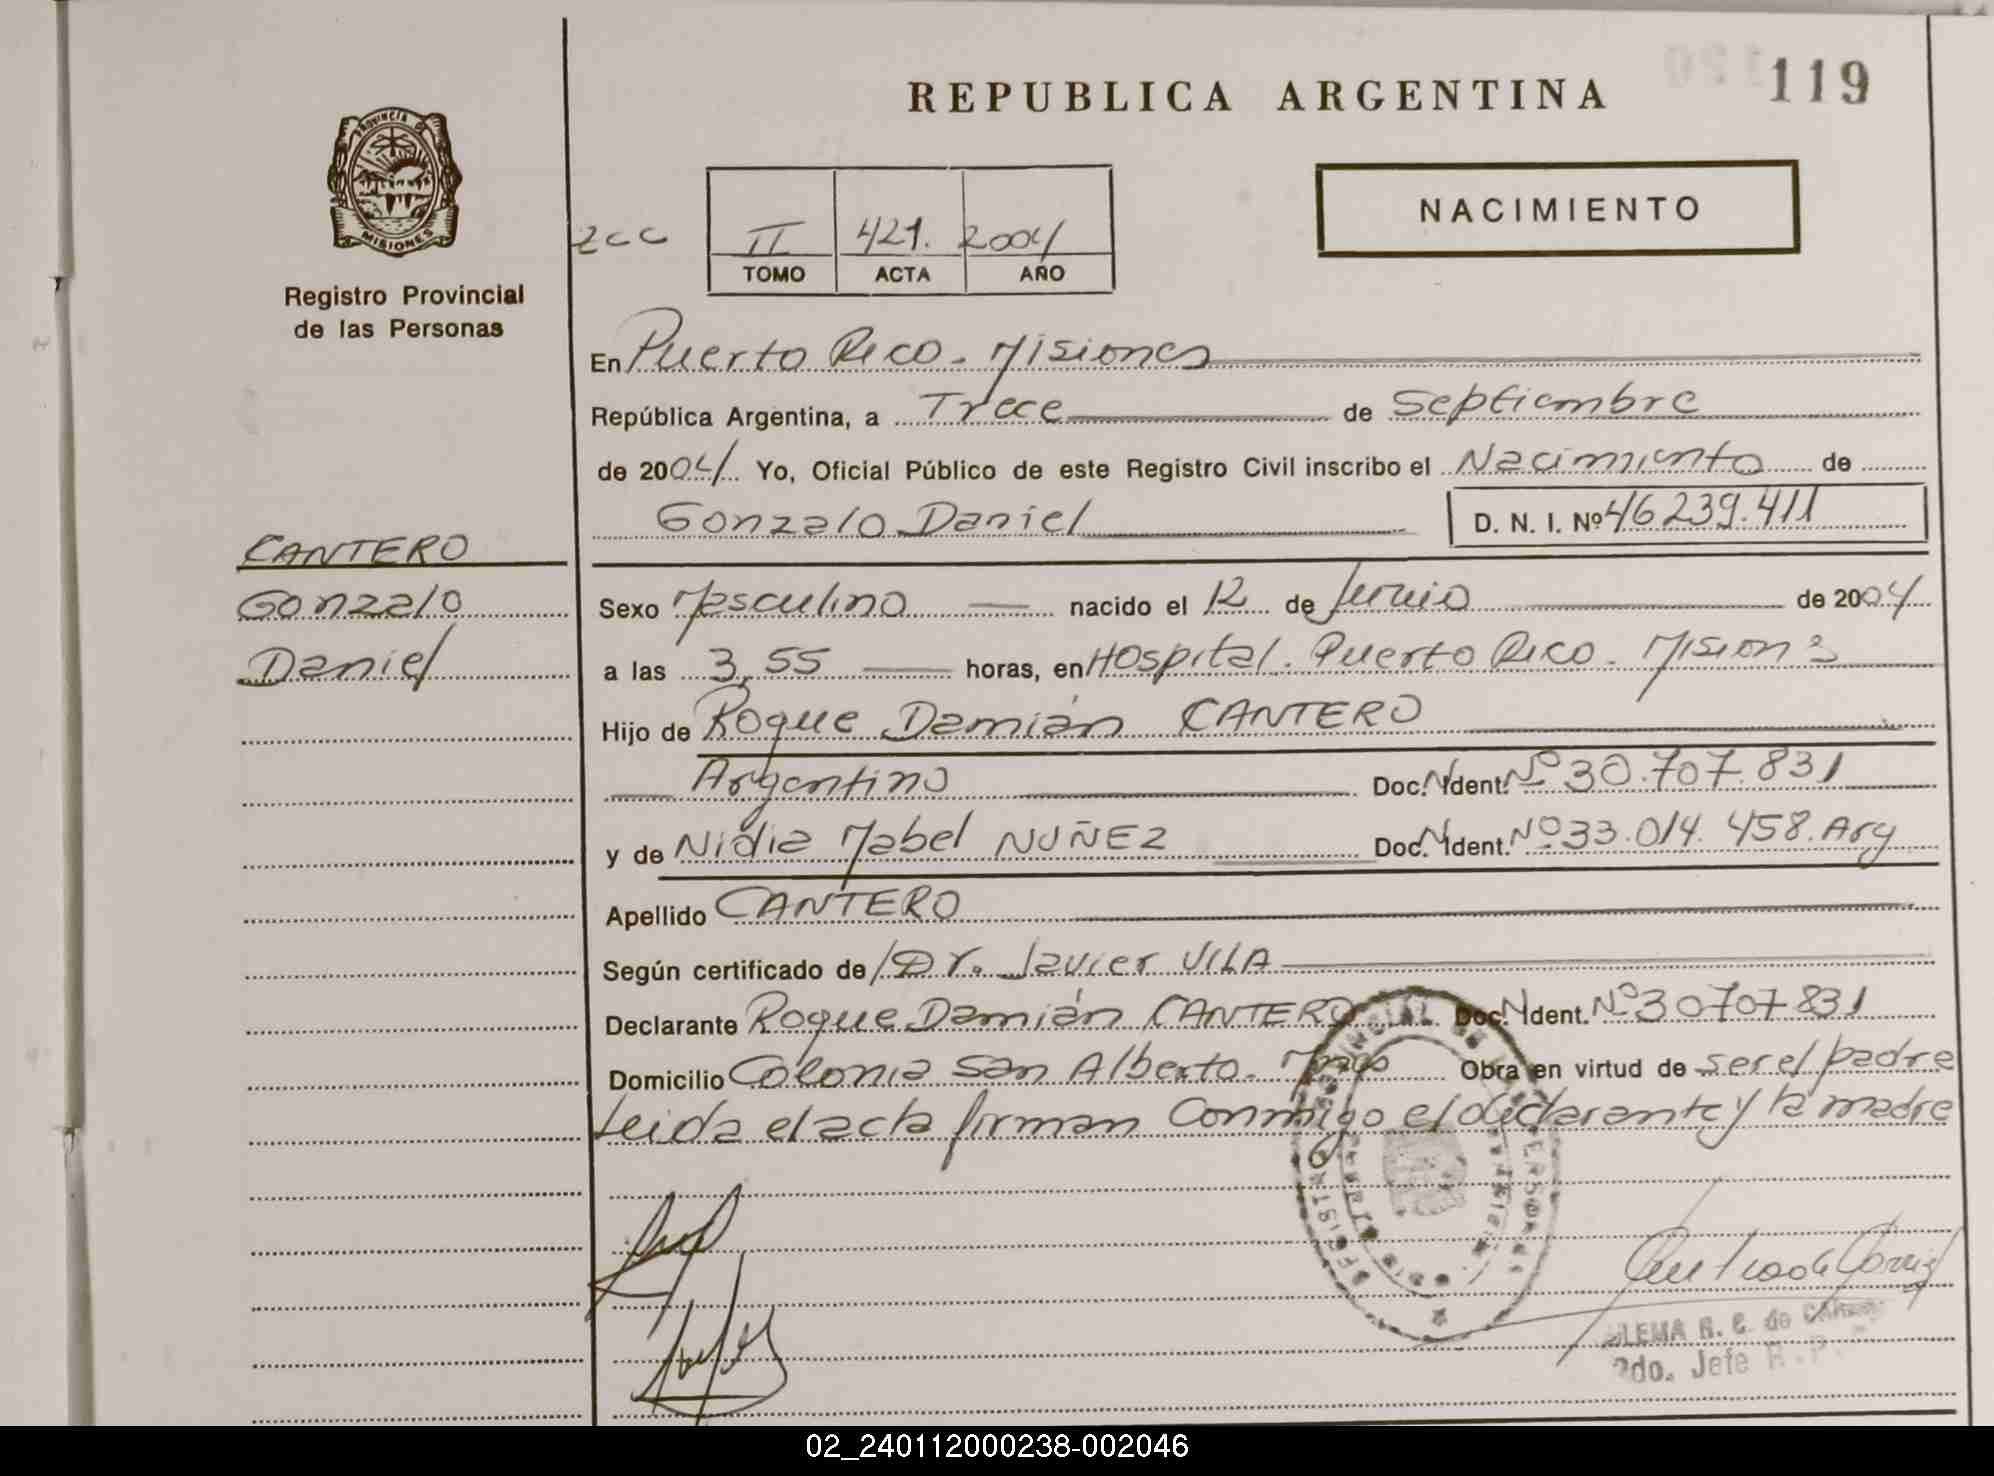 REPUBLICA ARGENTINA
119
PROVINCIA DE
MISIONES
Registro Provincial
de las Personas
NACIMIENTO
II 421. 2004
TOMO ACTA AÑO
En Puerto Rico - Misiones
República Argentina, a Trece de Septiembre
de 2004 Yo, Oficial Público de este Registro Civil inscribo el Nacimiento de
Gonzalo Daniel D. N. I. Nº 46239.411
CANTERO
Gonzalo
Daniel
Sexo Masculino nacido el 12 de Junio de 2004
a las 3,55 horas, en Hospital. Puerto Rico. Misiones
Hijo de Roque Damián CANTERO
Argentino Doc. N Ident. Nº 30.707.831
y de Nidia Mabel NUÑEZ Doc. N Ident. Nº 33.014.458. Arg
Apellido CANTERO
Según certificado de Dr. Javier VILA
Declarante Roque Damián CANTERO Doc. N Ident. Nº 30707831
Domicilio Colonia San Alberto. Obra en virtud de ser el padre
Leida el acta firman Conmigo el declarante y la madre
R. C. de
2do. Jefe R. P.
02_240112000238-002046